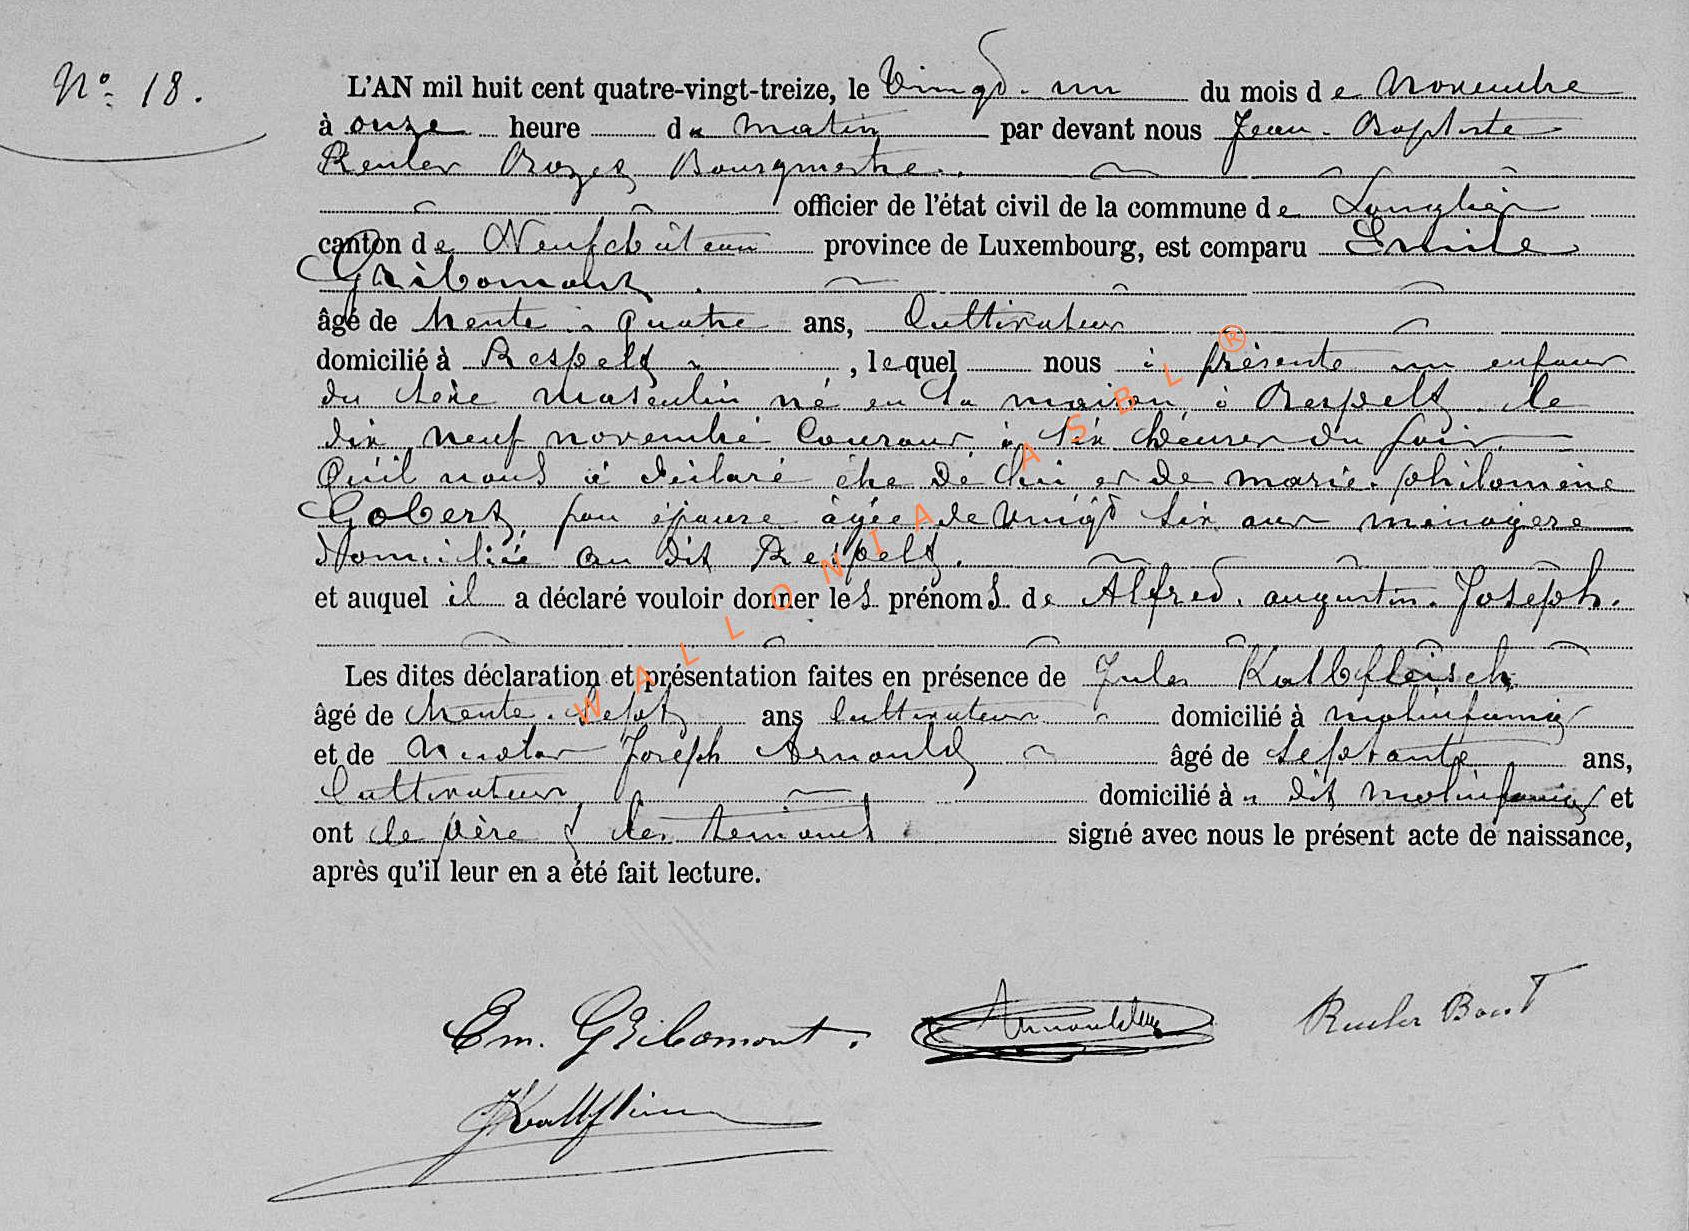 N° 18.
L'AN mil huit cent quatre-vingt-treize, le vingt-un du mois de Novembre
à onze heure du matin par devant nous Jean-Baptiste
Reuler Bourgmestre
officier de l'état civil de la commune de Longlier
canton de Neufchâteau province de Luxembourg, est comparu Emile
Gribomont
âgé de trente-quatre ans, Cultivateur
domicilié à Respelt, lequel nous à présenté un enfant
du sèxe masculin né en sa maison, à Respelt le
dix neuf novembre courant à six heures du soir
Qu'il nous à déclaré être de lui et de marie-philomène
Gobert, son épouse âgée de vingt six ans ménagère
domiciliée au dit Respelt.
et auquel il a déclaré vouloir donner les prénoms de Alfred. augustin. Joseph.
Les dites déclaration et présentation faites en présence de Jules Kalbfleisch
âgé de trente-sept ans Cultivateur domicilié à molinfaing
et de Nicolas Joseph Arnould âgé de septante ans,
Cultivateur domicilié à u dit molinfaing et
ont le père & les temoins signé avec nous le présent acte de naissance,
après qu'il leur en a été fait lecture.
Em. Gribomont. Reuler
WALLONIA ASBL ®